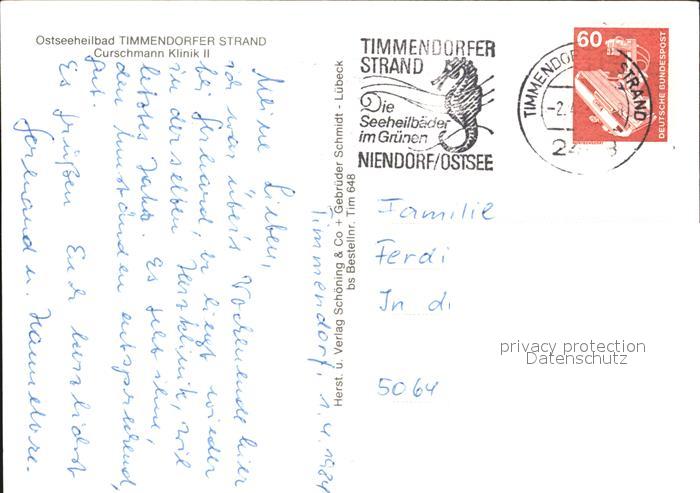 Ostseeheilbad TIMMENDORFER STRAND
Curschmann Klinik II
Timmendorf, 1.4.1984
Meine Lieben,
ich war über's Wochenende hier
bei Gerhard, er liegt wieder
in derselben Herzklinik, wie
letztes Jahr. Es geht ihm,
den Umständen entsprechend,
gut.
Es grüßen Euch herzlichst
Gerhard u. Hannelore.
Herst. u. Verlag Schöning & Co + Gebrüder Schmidt - Lübeck
bs Bestellnr. Tim 648
TIMMENDORFER
STRAND
Die
Seeheilbäder
im Grünen
NIENDORF/OSTSEE
TIMMENDORFER STRAND
60
DEUTSCHE BUNDESPOST
Familie
Ferdi
In d
5064
privacy protection
Datenschutz